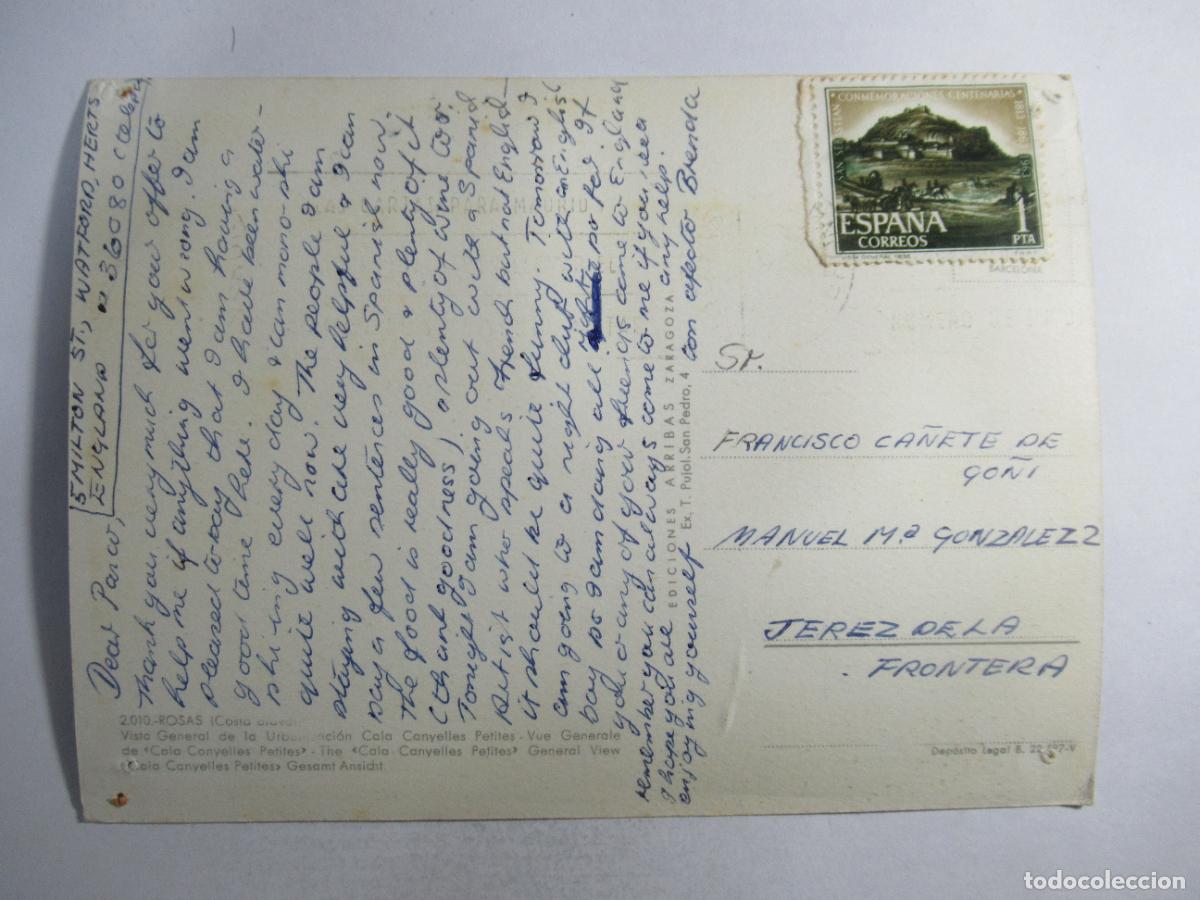 5 MILTON ST., WATFORD, HERTS
ENGLAND
36080
Dear Paco,
Thank you very much for your offer to
help me if anything went wrong. I am
pleased to say that I am having a
good time here. I have been water-
ski ing every day & can mono-ski
quite well now. The people I am
staying with are very helpful & I can
say a few sentences in Spanish now.
The food is really good & plenty of it
(thank goodness). & plenty of wine too.
Tonight I am going out with a Spanish
artist who speaks French but not English -
it should be quite funny. Tomorrow I
am going to a night club with an English
boy so I am doing all right so far. If
you or any of your friends come to England
remember you can always come to me if you need
any help.
I hope you are
enjoying yourself
con afecto Brenda
2.010.-ROSAS (Costa Brava)
Vista General de la Urbanización Cala Canyelles Petites - Vue Generale
de «Cala Canyelles Petites» - The «Cala Canyelles Petites» General View
«Cala Canyelles Petites» Gesamt Ansicht
EDICIONES ARRIBAS ZARAGOZA
Ex. T. Pujol. San Pedro, 4
CONMEMORACIONES CENTENARIAS
SAN SEBASTIAN
1813
1963
ESPAÑA
CORREOS
1
PTA
BARCELONA
Sr.
FRANCISCO CAÑETE DE
GOÑI
MANUEL Mª GONZALEZ 2
JEREZ DE LA
FRONTERA
Depósito Legal B.
todocoleccion